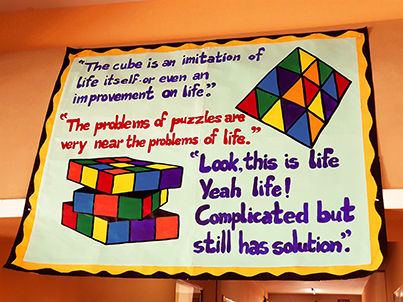 "The cube is an imitation of
life itself-or even an
improvement on life."
"The problems of puzzles are
very near the problems of life."
"Look, this is life
Yeah life!
Complicated but
still has solution".